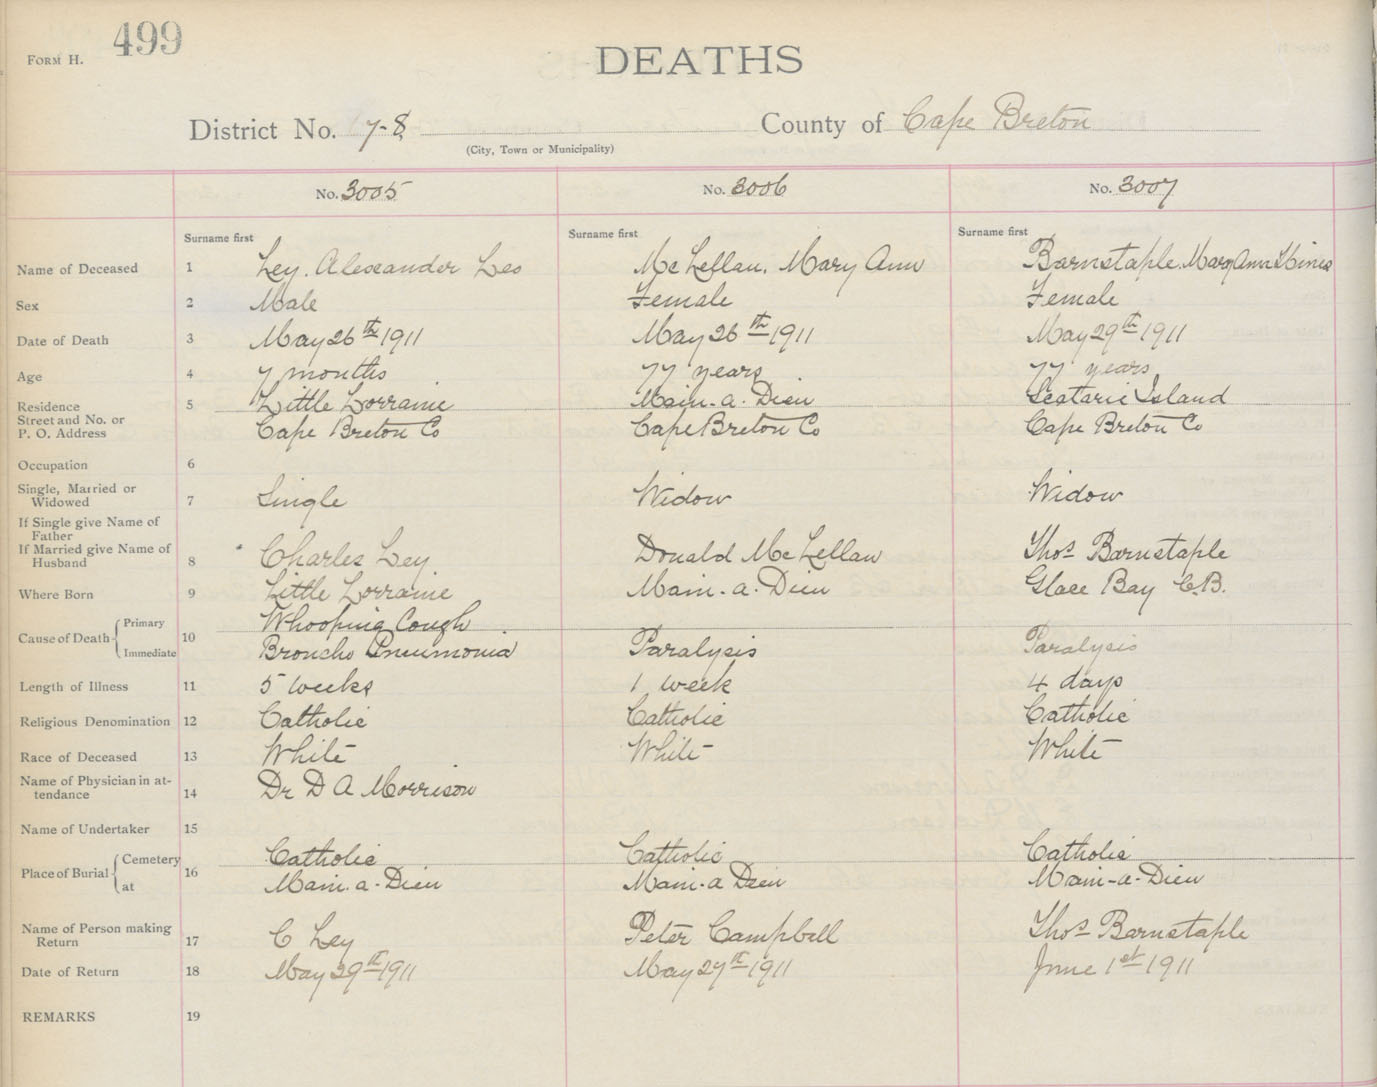 499
FORM H.
DEATHS
District No. 7-8 County of Cape Breton
(City, Town or Municipality)
No. 3005 No. 3006 No. 3007
Surname first Surname first Surname first
Name of Deceased 1 Ley. Alexander Leo McLellan, Mary Ann Barnstaple, Mary Ann Hines
Sex 2 Male Female Female
Date of Death 3 May 26th 1911 May 26th 1911 May 29th 1911
Age 4 7 months 77 years 77 years
Residence 5 Little Lorraine Main-a-Dieu Scatarie Island
Street and No. or
P. O. Address Cape Breton Co Cape Breton Co Cape Breton Co
Occupation 6
Single, Married or
Widowed 7 Single Widow Widow
If Single give Name of
Father
If Married give Name of
Husband 8 Charles Ley Donald McLellan Thos Barnstaple
Where Born 9 Little Lorraine Main-a-Dieu Glace Bay C.B.
Cause of Death 10 Primary Whooping Cough
Immediate Broncho Pneumonia Paralysis Paralysis
Length of Illness 11 5 weeks 1 week 4 days
Religious Denomination 12 Catholic Catholic Catholic
Race of Deceased 13 White White White
Name of Physician in at-
tendance 14 Dr D A Morrison
Name of Undertaker 15
Place of Burial 16 Cemetery Catholic Catholic Catholic
at Main-a-Dieu Main-a Dieu Main-a-Dieu
Name of Person making
Return 17 C Ley Peter Campbell Thos Barnstaple
Date of Return 18 May 29th 1911 May 27th 1911 June 1st 1911
REMARKS 19